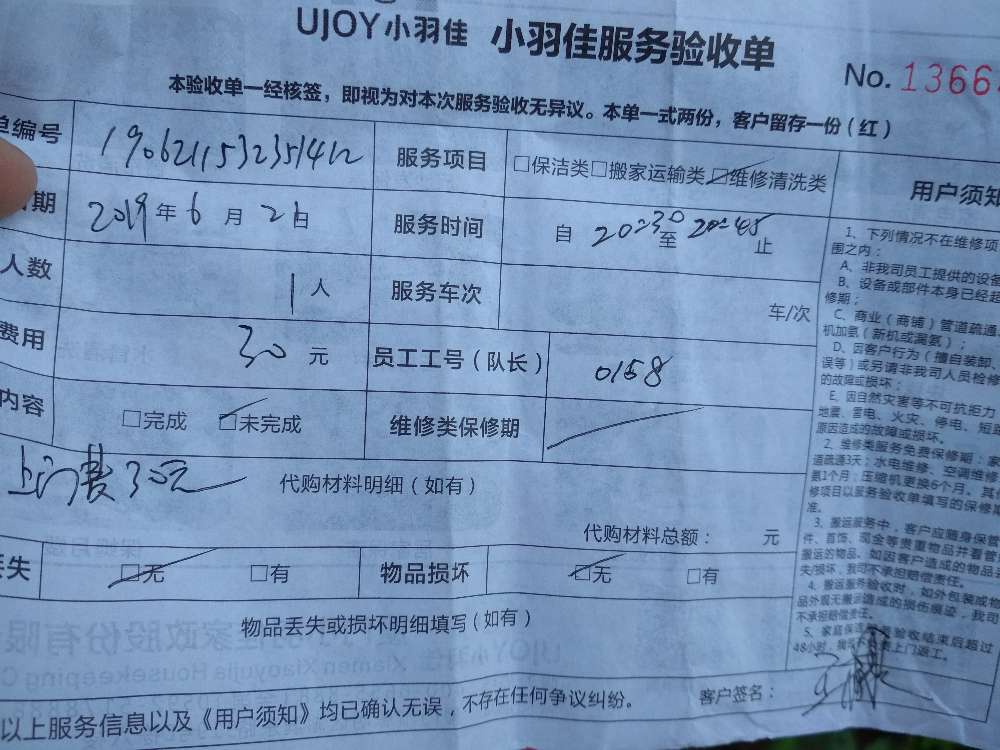 UJOY小羽佳 小羽佳服务验收单
No. 1366
本验收单一经核签，即视为对本次服务验收无异议。本单一式两份，客户留存一份（红）
单编号 服务项目 □保洁类□搬家运输类□维修清洗类
日期 2019年6月21日 服务时间 自 20:30 至 20:45 止
人数 1人 服务车次 车/次
费用 30元 员工工号（队长） 0158
内容 □完成 □未完成 维修类保修期
上门费30元 代购材料明细（如有）
代购材料总额： 元
丢失 □无 □有 物品损坏 □无 □有
物品丢失或损坏明细填写（如有）
以上服务信息以及《用户须知》均已确认无误，不存在任何争议纠纷。 客户签名：
用户须知
1、下列情况不在维修项
围之内：
A、非我司员工提供的设备
B、设备或部件本身已经超
修期；
C、商业（商铺）管道疏通
机加氨（新机或漏氨）；
D、因客户行为（擅自装卸、
误等）或另请非我司人员检修
的故障或损坏；
E、因自然灾害等不可抗拒力
地震、雷电、火灾、停电、短路
原因造成的故障或损坏。
2、维修类服务免费保修期：家
道疏通3天；水电维修、空调维修
氨1个月；压缩机更换6个月。其
修项目以服务验收单填写的保修期
准。
3、搬运服务中，客户应随身保管
件、首饰、现金等贵重物品并看管
搬运的物品。如因客户造成的物品
失/损坏，我司不承担赔偿责任。
4、搬运服务验收时，如外包装或
品外观无搬运造成的损伤痕迹，我司
不承担赔偿责任。
5、家庭保洁服务验收结束后超过
48小时，
上门返工。